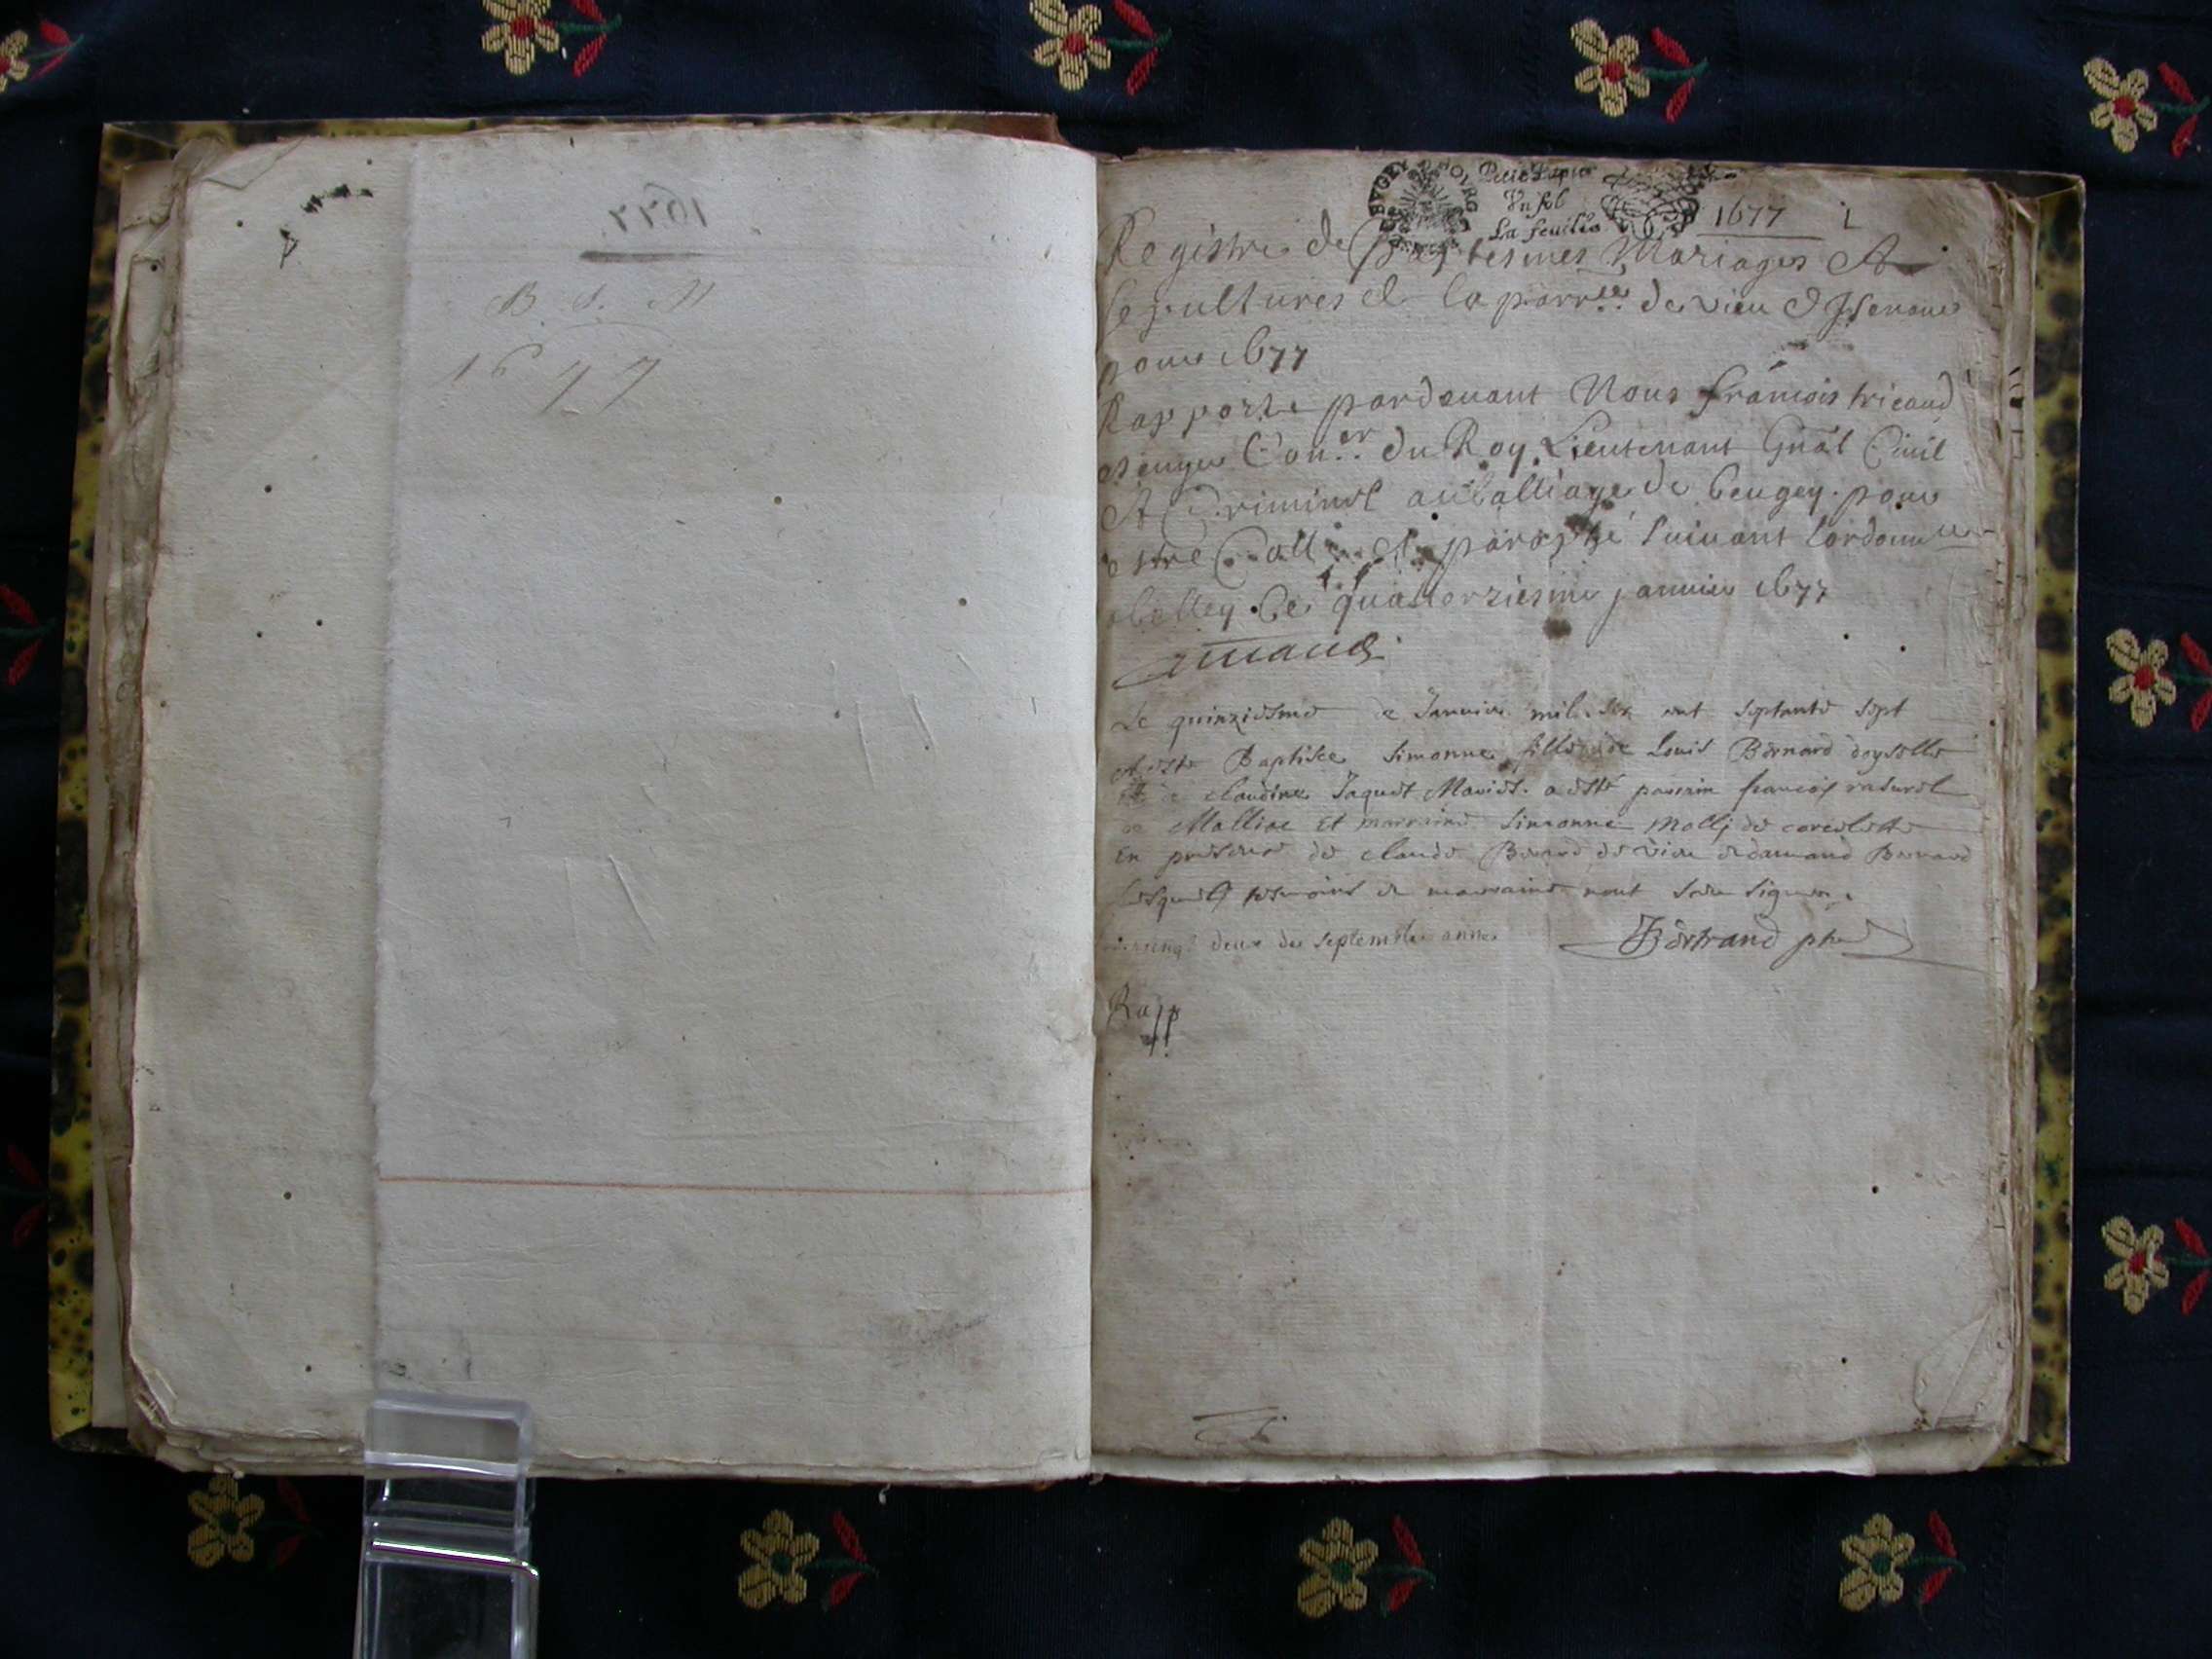 B. S. M
1677
BVGEY BOVRG
Petit Papier
Vn sol
La feuille
1677 1
Registre de Baptesmes Mariages Et
Sepultures de la parr.se de vieu d Isenaue
pour 1677
Rapporte pardeuant Nous francois tricaud
escuyer Con.er du Roy Lieutenant Gnãl Ciuil
Et Criminel au balliage de beugey pour
estre Cotté et paraphé suiuant lordonn.ce
belley Ce quatorziesme januier 1677
Le quinziesme de Januier mil six cent septante sept
A este Baptisee Simonne fille de Louis Bernard
Et de claudine Jaquet Mariés. a esté parrain francois
de Et marraine Simonne molly de
En presence de claude de vieu Bernard
Lesquels tesmoins et marraine nont sceu signer.
vingt deux de septembre anne
Bertrand pbr
Rapp